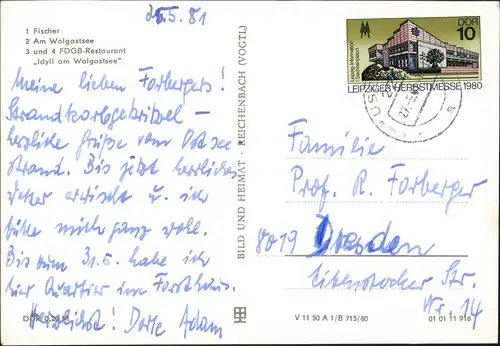 25.5.81
1 Fischer
2 Am Wolgastsee
3 und 4 FDGB-Restaurant
„Idyll am Wolgastsee"
Meine lieben Forbergers!
Strandkorbgekritzel –
herzliche Grüße vom Ostsee
strand. Bis jetzt herrliches
Wetter erwischt u. ich
fühle mich ganz wohl.
Bis zum 31.5. habe ich
hier Quartier im Forsthaus.
Herzlichst! Dorle Adam
DDR 0,20 M
BILD UND HEIMAT · REICHENBACH (VOGTL)
DDR
10
Leipzig-Information
(Sachsenplatz)
LEIPZIGER HERBSTMESSE 1980
a
Familie
Prof. R. Forberger
8019 Dresden
Eibenstocker Str.
Nr. 14
V 11 50 A 1/B 715/80
01 01 11 916